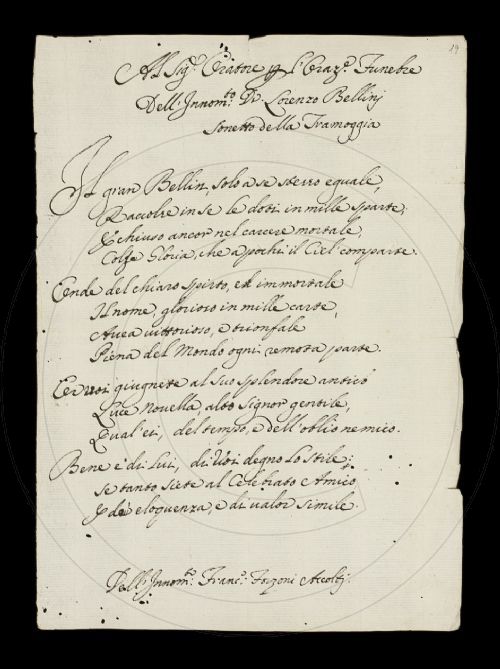 19
Al Sig.r Oratore p l'Oraz.e Funebre
Dell'Innom.to Dr. Lorenzo Bellinj
sonetto della Tramoggia
Il gran Bellin, solo a se stesso eguale,
Raccolse in se le doti in mille sparte,
E chiuso ancor nel carcere mortale,
Colse Gloria, che a pochi il Ciel comparte.
Onde del chiaro spirto, ed immortale
Il nome, glorioso in mille carte,
Avea vittorioso, e trionfale
Piena del Mondo ogni remota parte.
Or voi giugnete al suo splendore antico
Luce novella, alto signor gentile,
Qual'ei, del tempo, e dell'oblio nemico.
Bene è di Lui, di Voi degno lo stile;
se tanto siete al Celebrato Amico
E d'eloquenza, e di valor simile.
Dell'Innom.to Franc.o Forzoni Accoltj.